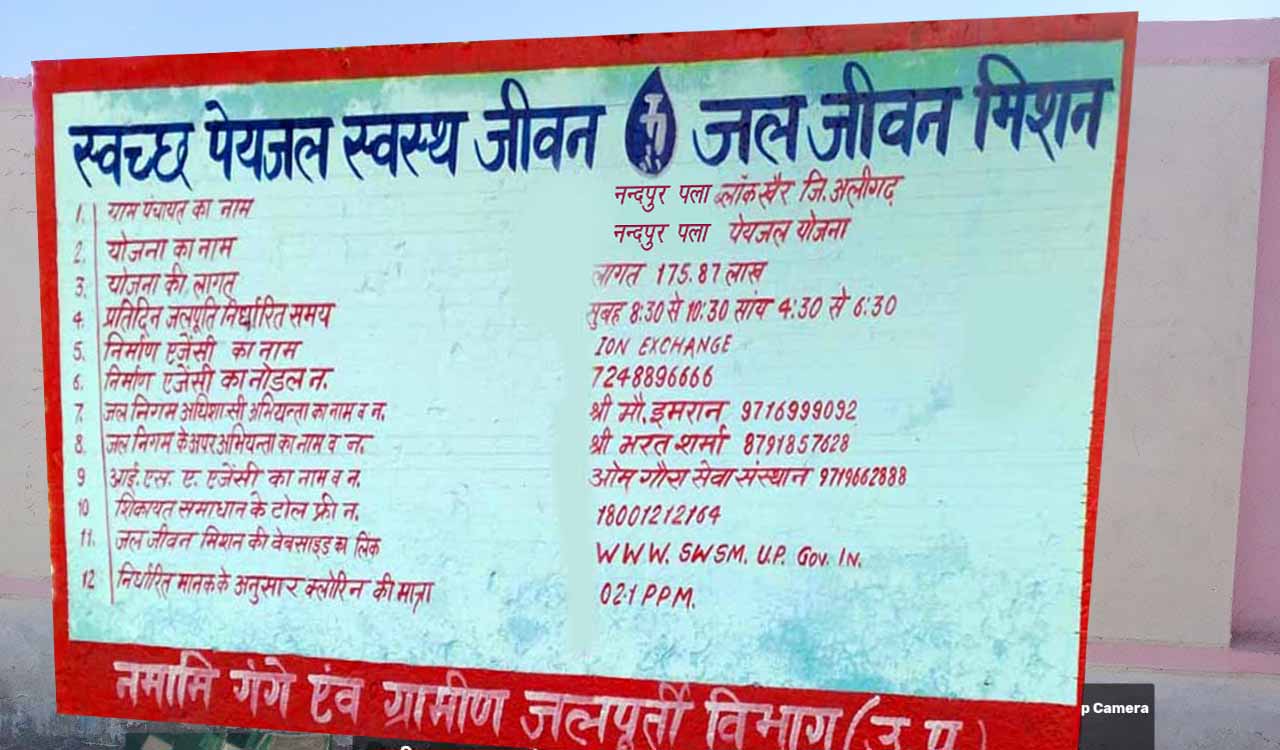 स्वच्छ पेयजल स्वस्थ जीवन जल जीवन मिशन
1. ग्राम पंचायत का नाम नन्दपुर पला ब्लॉक खैर जि. अलीगढ़
2. योजना का नाम नन्दपुर पला पेयजल योजना
3. योजना की लागत लागत 175.87 लाख
4. प्रतिदिन जलपूर्ति निर्धारित समय सुबह 8:30 से 10:30 सांय 4:30 से 6:30
5. निर्माण एजेंसी का नाम ION EXCHANGE
6. निर्माण एजेंसी का नोडल न. 7248896666
7. जल निगम अधिशासी अभियन्ता का नाम व न. श्री मौ. इमरान 9716999092
8. जल निगम के अपर अभियन्ता का नाम व न. श्री भरत शर्मा 8791857628
9 आई. एस. ए. एजेंसी का नाम व न. ओम गौरा सेवा संस्थान 9719662888
10 शिकायत समाधान के टोल फ्री न. 18001212164
11. जल जीवन मिशन की वेबसाइड का लिंक WWW. SWSM. U.P. Gov. IN.
12 निर्धारित मानक के अनुसार क्लोरिन की मात्रा 02.1 PPM.
नमामि गंगे एंव ग्रामीण जलपूर्ती विभाग (उ.प्र.)
p Camera